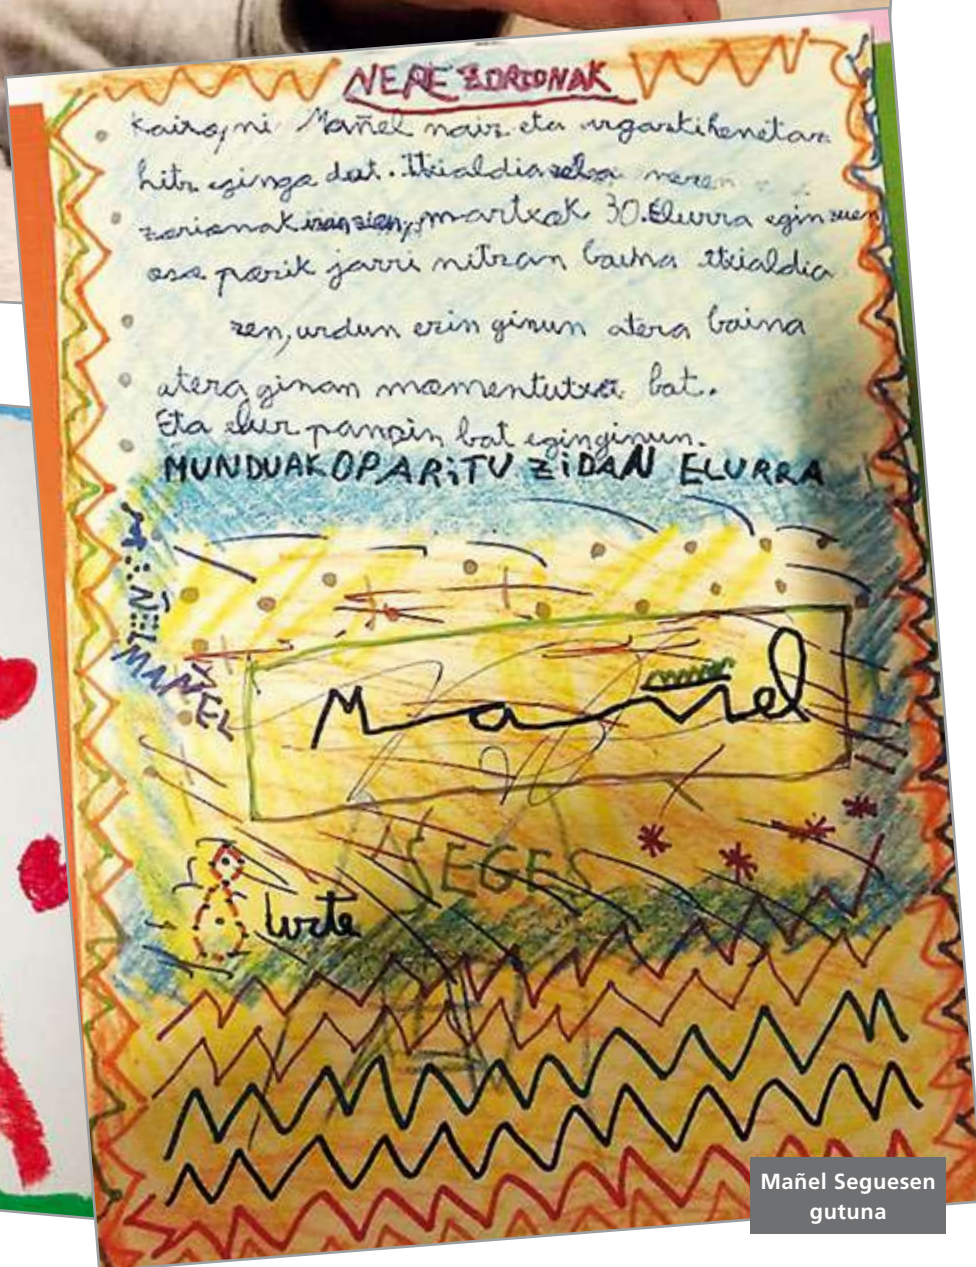 NERE ZORIONAK
Kaixo, ni Mañel naiz eta
hitz egingo dut. Itxialdia zela neren
zorionak izan zien, martxok 30. Elurra egin zuen
oso pozik jarri nitzan baina itxialdia
zen, urdun ezin ginun atera baina
atera ginan momentutxo bat.
Eta elur panpin bat egin ginun.
MUNDUAK OPARiTU ZiDAN ELURRA
MAÑEL
Mañel
SEGES
urte
Mañel Seguesen
gutuna